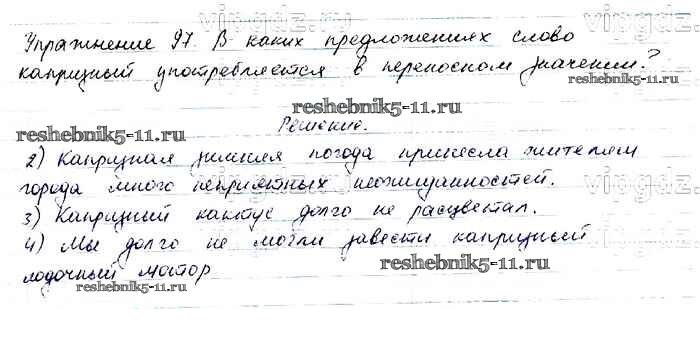 vingdz.ru
Упражнение 97. В каких предложениях слово
капризный употребляется в переносном значении?
reshebnik5-11.ru
reshebnik5-11.ru
Решение.
reshebnik5-11.ru
2) Капризная зимняя погода принесла жителям
города много неприятных неожиданностей.
vingdz
3) Капризный кактус долго не расцветал.
4) Мы долго не могли завести капризный
лодочный мотор
reshebnik5-11.ru
reshebnik5-11.ru